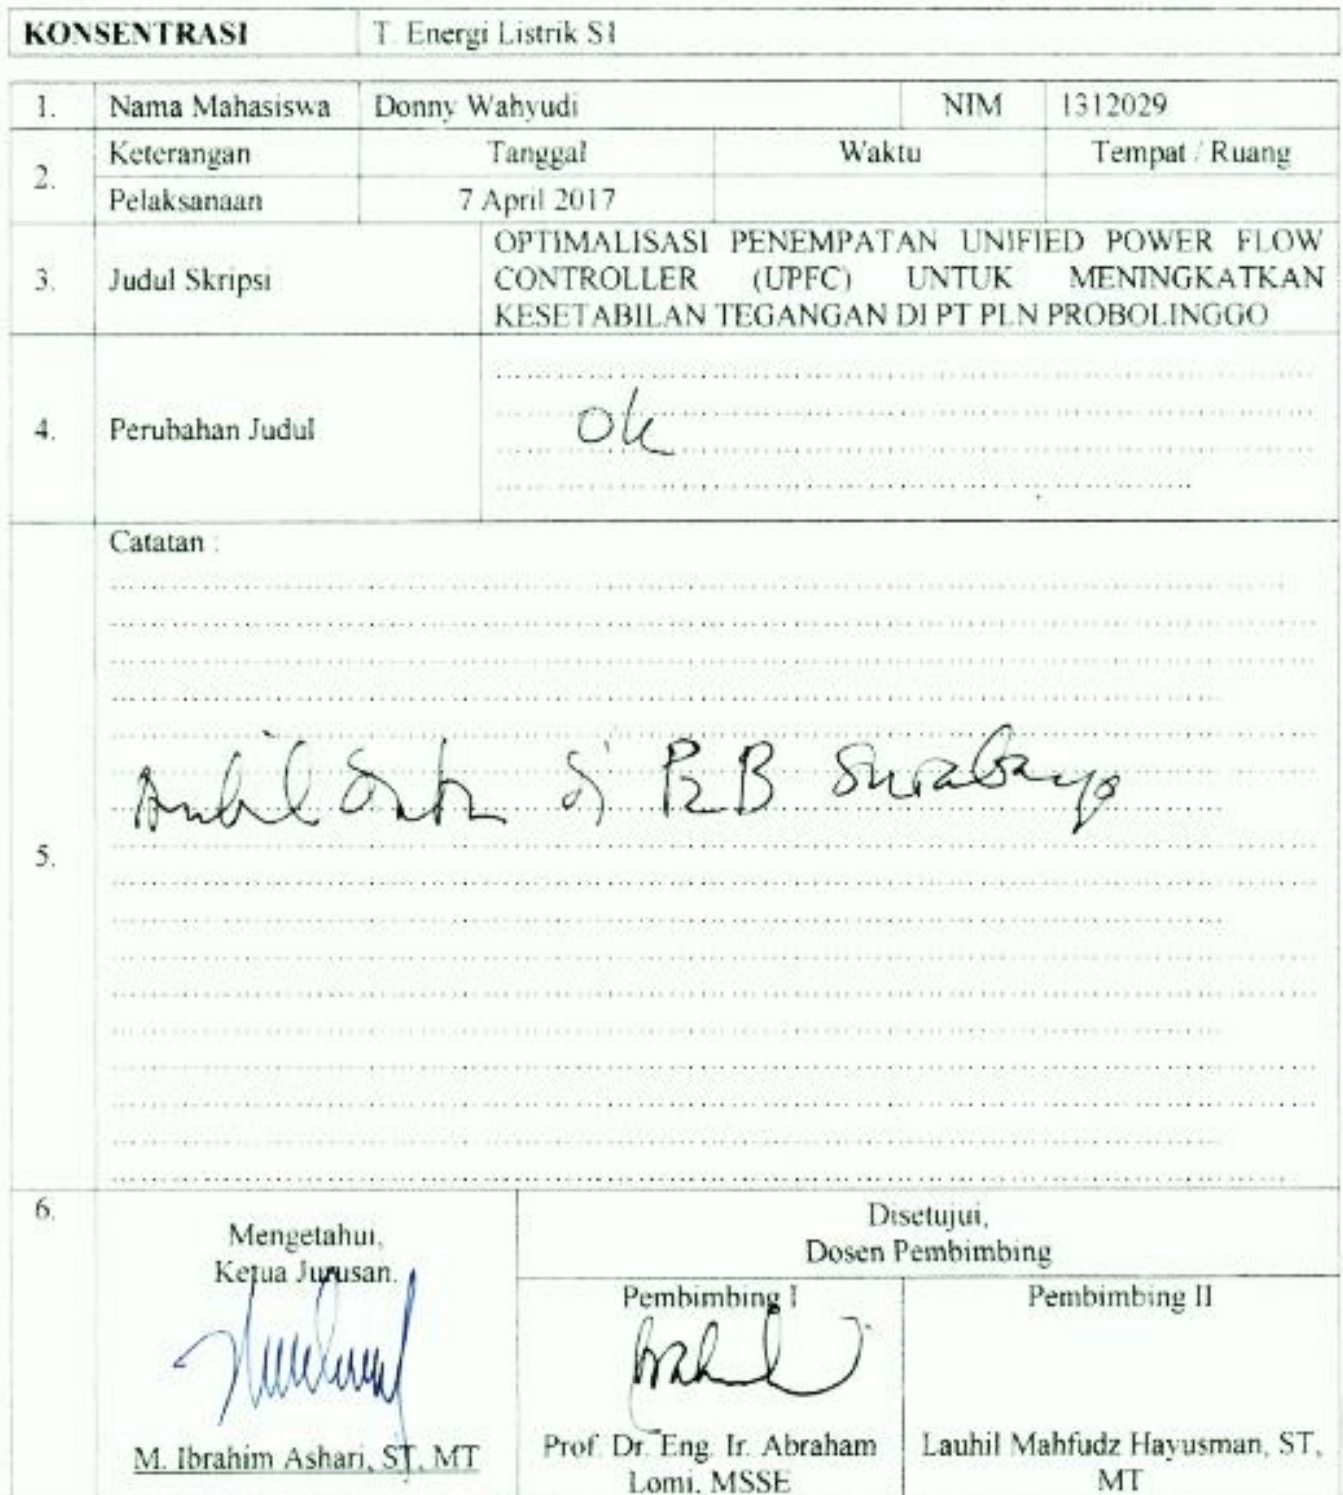 KONSENTRASI T. Energi Listrik S1
1. Nama Mahasiswa Donny Wahyudi NIM 1312029
2. Keterangan Tanggal Waktu Tempat / Ruang
Pelaksanaan 7 April 2017
3. Judul Skripsi OPTIMALISASI PENEMPATAN UNIFIED POWER FLOW
CONTROLLER (UPFC) UNTUK MENINGKATKAN
KESETABILAN TEGANGAN DI PT PLN PROBOLINGGO
4. Perubahan Judul ok
5. Catatan :
Ambil data di P2B Surabaya
6. Mengetahui,
Ketua Jurusan.
M. Ibrahim Ashari, ST, MT
Disetujui,
Dosen Pembimbing
Pembimbing I
Prof. Dr. Eng. Ir. Abraham
Lomi, MSSE
Pembimbing II
Lauhil Mahfudz Hayusman, ST,
MT